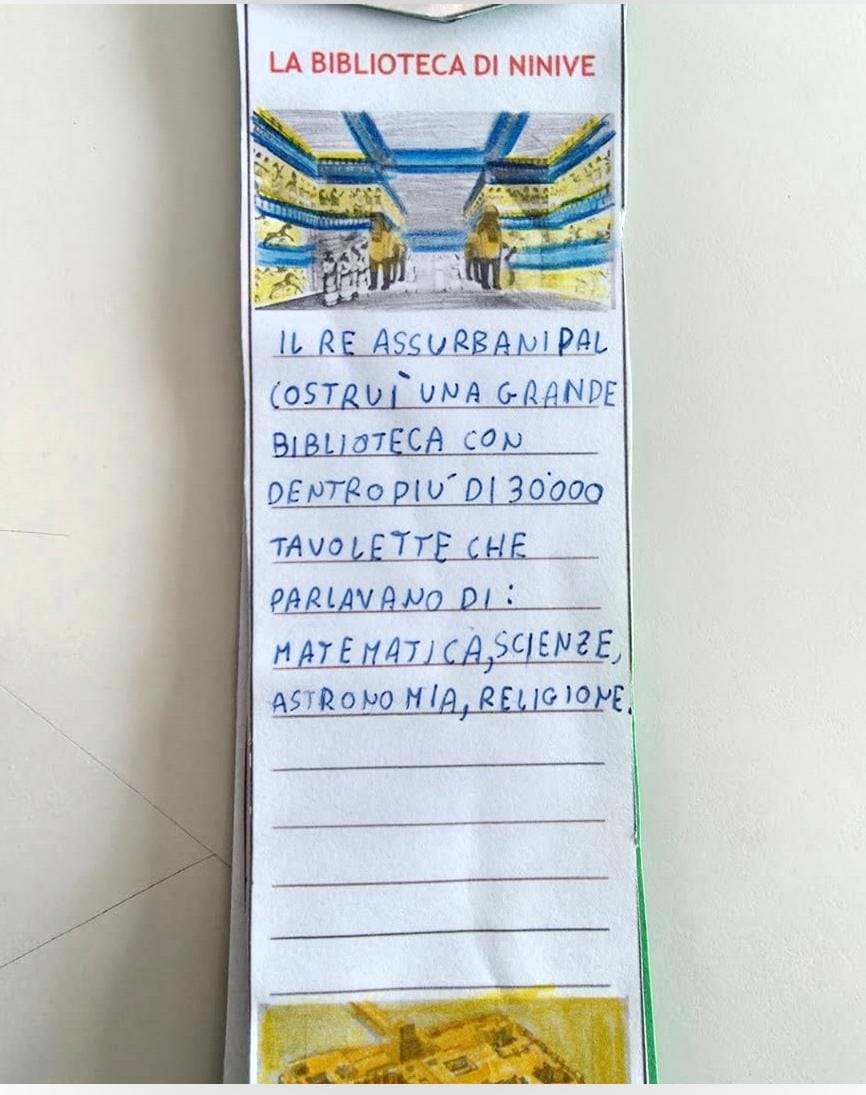 LA BIBLIOTECA DI NINIVE
IL RE ASSURBANIPAL
COSTRUÌ UNA GRANDE
BIBLIOTECA CON
DENTRO PIÚ DI 30'000
TAVOLETTE CHE
PARLAVANO DI:
MATEMATICA, SCIENZE,
ASTRONOMIA, RELIGIONE.